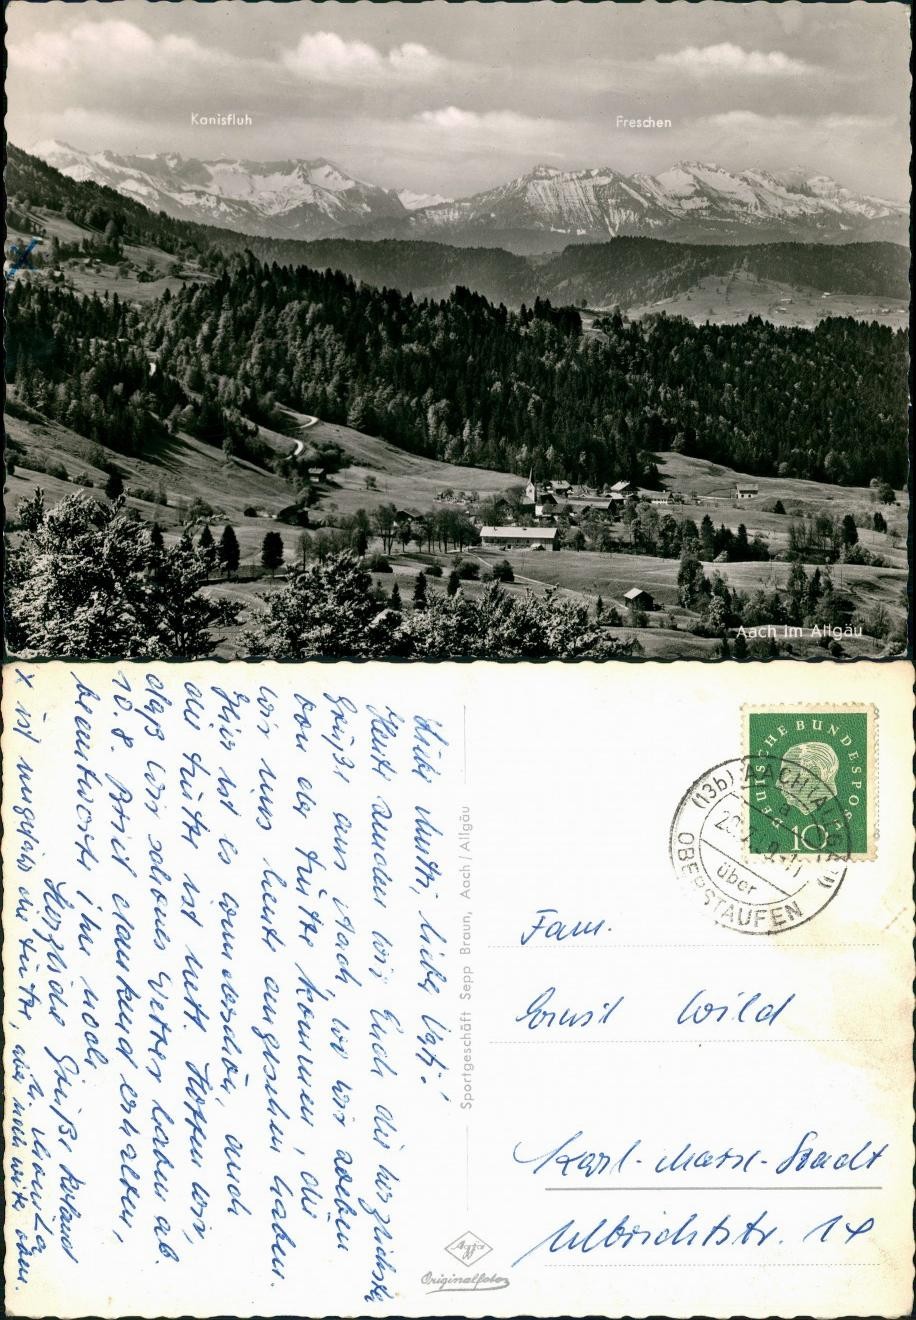 Kanisfluh
Freschen
Aach im Allgäu
Liebe Mutti, lieber Vati!
Heute senden wir Euch die herzlichsten
Grüße aus Aach wo wir soeben
von der Hütte kommen, die
wir uns heute angesehen haben.
Hier ist es wunderschön, auch
die Hütte ist nett. Hoffen wir,
daß wir schönes Wetter haben ab
10.8. Brief dankend erhalten,
beantworte ihn noch.
Herzliche Grüße Roland
u. Monika
x ist ungefähr die Hütte, aber noch weiter oben.
Sportgeschäft Sepp Braun, Aach / Allgäu
Agfa
Originalfoto
DEUTSCHE BUNDESPOST
10
(13b) AACH (ALLGÄU)
a
über
OBERSTAUFEN
Fam.
Ernst Wild
Karl-Marx-Stadt
Ulbrichtstr. 14